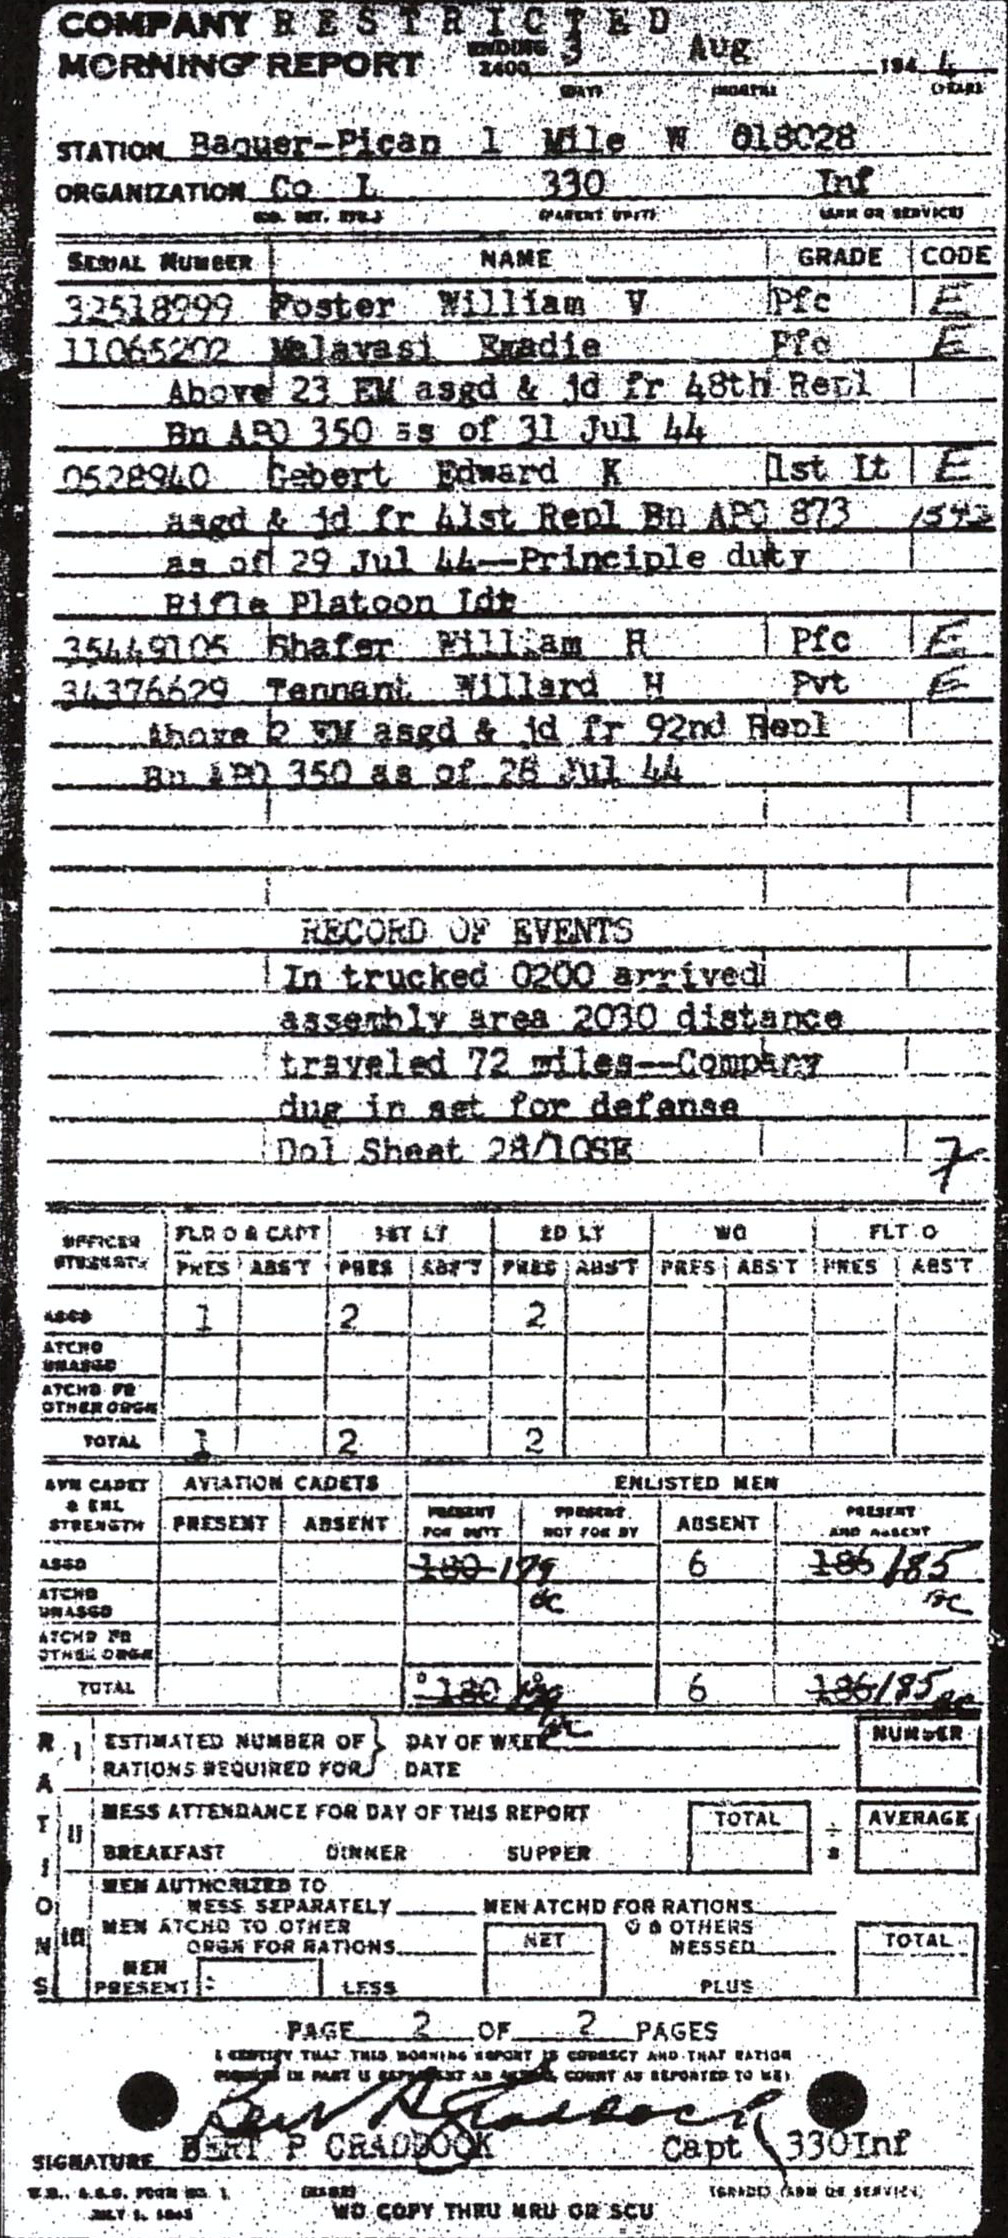 COMPANY RESTRICTED
MORNING REPORT ENDING 2400 3 Aug 194 4
(DAY) (MONTH) (YEAR)
STATION Baguer-Pican 1 Mile W 018028
ORGANIZATION Co L 330 Inf
(CO. DET. ETC.) (PARENT UNIT) (ARM OR SERVICE)
SERIAL NUMBER NAME GRADE CODE
32518999 Foster William V Pfc E
11065202 Malavasi Emadie Pfc E
Above 23 EM asgd & jd fr 48th Repl
Bn APO 350 as of 31 Jul 44
0528940 Gebert Edward K 1st Lt E
asgd & jd fr 41st Repl Bn APO 873 1542
as of 29 Jul 44—Principle duty
Rifle Platoon Ldr
35449105 Shafer William H Pfc E
34376629 Tennant Willard H Pvt E
Above 2 EM asgd & jd fr 92nd Repl
Bn APO 350 as of 28 Jul 44
RECORD OF EVENTS
In trucked 0200 arrived
assembly area 2030 distance
traveled 72 miles—Company
dug in set for defense
Dol Sheet 28/10SE 7
OFFICER STRENGTH FLD O & CAPT 1ST LT 2D LT WO FLT O
PRES ABS'T PRES ABS'T PRES ABS'T PRES ABS'T PRES ABS'T
ASGD 1 2 2
ATCHD UNASGD
ATCHD FR OTHER ORGN
TOTAL 1 2 2
AVN CADET & ENL STRENGTH AVIATION CADETS ENLISTED MEN
PRESENT ABSENT PRESENT FOR DUTY PRESENT NOT FOR DY ABSENT PRESENT AND ABSENT
ASGD 180 179 6 186 185
ATCHD UNASGD
ATCHD FR OTHER ORGN
TOTAL 180 179 6 186 185
RATIONS
I ESTIMATED NUMBER OF RATIONS REQUIRED FOR DAY OF WEEK NUMBER
DATE
II MESS ATTENDANCE FOR DAY OF THIS REPORT TOTAL ÷ AVERAGE
BREAKFAST DINNER SUPPER
III MEN AUTHORIZED TO
MESS SEPARATELY MEN ATCHD FOR RATIONS
MEN ATCHD TO OTHER NET O & OTHERS TOTAL
ORGN FOR RATIONS MESSED
MEN PRESENT LESS PLUS
PAGE 2 OF 2 PAGES
I CERTIFY THAT THIS MORNING REPORT IS CORRECT AND THAT RATION
FIGURES IN PART II REPRESENT AN ACTUAL COUNT AS REPORTED TO ME:
SIGNATURE BERT P CRADDOCK Capt 330Inf
W.D., A.G.O. FORM NO. 1 (NAME) (GRADE) (ARM OR SERVICE)
JULY 1, 1943 WD COPY THRU MRU OR SCU